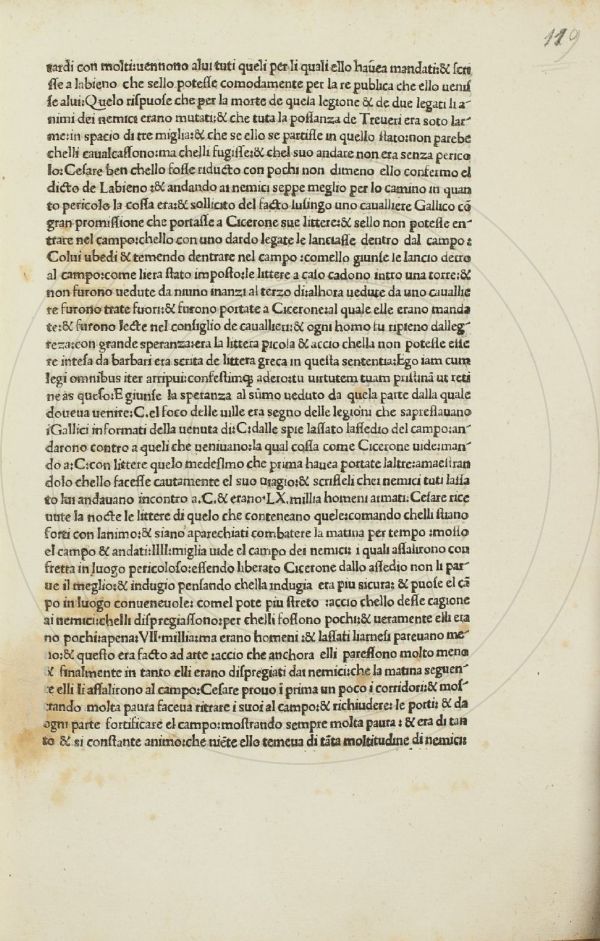 119
tardi con molti:uennono alui tuti queli per li quali ello hauea mandati:& scri
sse a labieno che sello potesse comodamente per la re publica che ello uenis
se alui:Quelo rispuose che per la morte de quela legione & de due legati li a
nimi dei nemici erano mutati:& che tuta la possanza de Treueri era soto lar
me:in spacio di tre miglia:& che se ello se partisse in quello stato:non parebe
chelli caualcassono:ma chelli fugisse:& chel suo andare non era senza perico
lo:Cesare ben chello fosse riducto con pochi non dimeno ello confermo el
dicto de Labieno:& andando ai nemici seppe meglio per lo camino in quan
to pericolo la cossa era:& sollicito del facto lusingo uno caualliere Gallico cō
gran promissione che portasse a Cicerone sue littere:& sello non potesse en-
trare nel campo:chello con uno dardo legate le lanciasse dentro dal campo:
Colui ubedi & temendo dentrare nel campo:comello giunse le lancio detro
al campo:come liera stato imposto:le littere a caso cadono intro una torre:&
non furono uedute da niuno inanzi al terzo di:alhora uedute da uno caualli
re furono trate fuori:& furono portate a Cicerone:al quale elle erano manda
te:& furono lecte nel consiglio de cauallieri:& ogni homo fu ripieno dalleg-
reza:con grande speranza:era la littera picola & accio chella non potesse esse
re intesa da barbari era scrita de littera greca in questa sententia:Ego iam cum
legi omnibus iter arripui:confestimq; adero:tu uirtutem tuam pristinā ut reti
neas queso:E giunse la speranza al sūmo ueduto da quela parte dalla quale
doueua uenire:C.el foco delle uille era segno delle legioni che sapressauano
iGallici informati della uenuta di:C:dalle spie lassato lassedio del campo:an-
darono contro a queli che ueniuano:la qual cossa come Cicerone uide:man-
do a:C:con littere quelo medesimo che prima hauea portate laltre:amaestran
dolo chello facesse cautamente el suo uiagio:& scrisseli chei nemici tuti lassa
to lui andauano incontro a.C.& erano.LX.millia homeni armati:Cesare rice
uute la nocte le littere di quelo che conteneano quele:comando chelli stiano
forti con lanimo:& siano aparechiati combatere la matina per tempo:mosso
el campo & andati:IIII:miglia uide el campo dei nemici: i quali assalirono con
fretta in luogo pericoloso:essendo liberato Cicerone dallo assedio non li par
ue il meglio:& indugio pensando chella indugia era piu sicura:& puose el cā
po in luogo conueneuole: comel pote piu streto :accio chello desse cagione
ai nemici:chelli dispregiassono:per chelli fossono pochi:& ueramente elli era
no pochi:apena:VII.millia:ma erano homeni:& lassati liarnesi pareuano me-
no:& questo era facto ad arte:accio che anchora elli paressono molto meno
& finalmente in tanto elli erano dispregiati dai nemici:che la matina seguen-
te elli li assalirono al campo:Cesare prouo i prima un poco i corridori:& mos-
trando molta paura faceua ritrare i suoi al campo:& richiudere: le porti: & da
ogni parte fortificare el campo:mostrando sempre molta paura: & era di tan
to & si constante animo:che niēte ello temeua di tāta moltitudine di nemici: